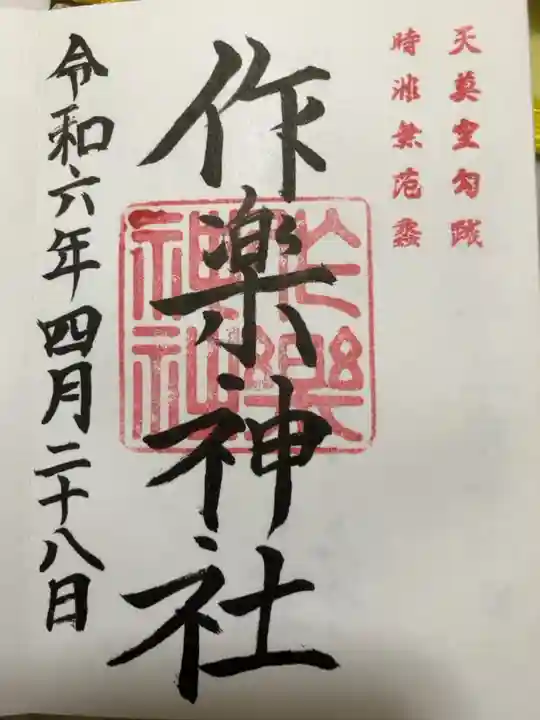 天莫空勾践
時非無范蠡
作楽神社
作樂神社
令和六年四月二十八日